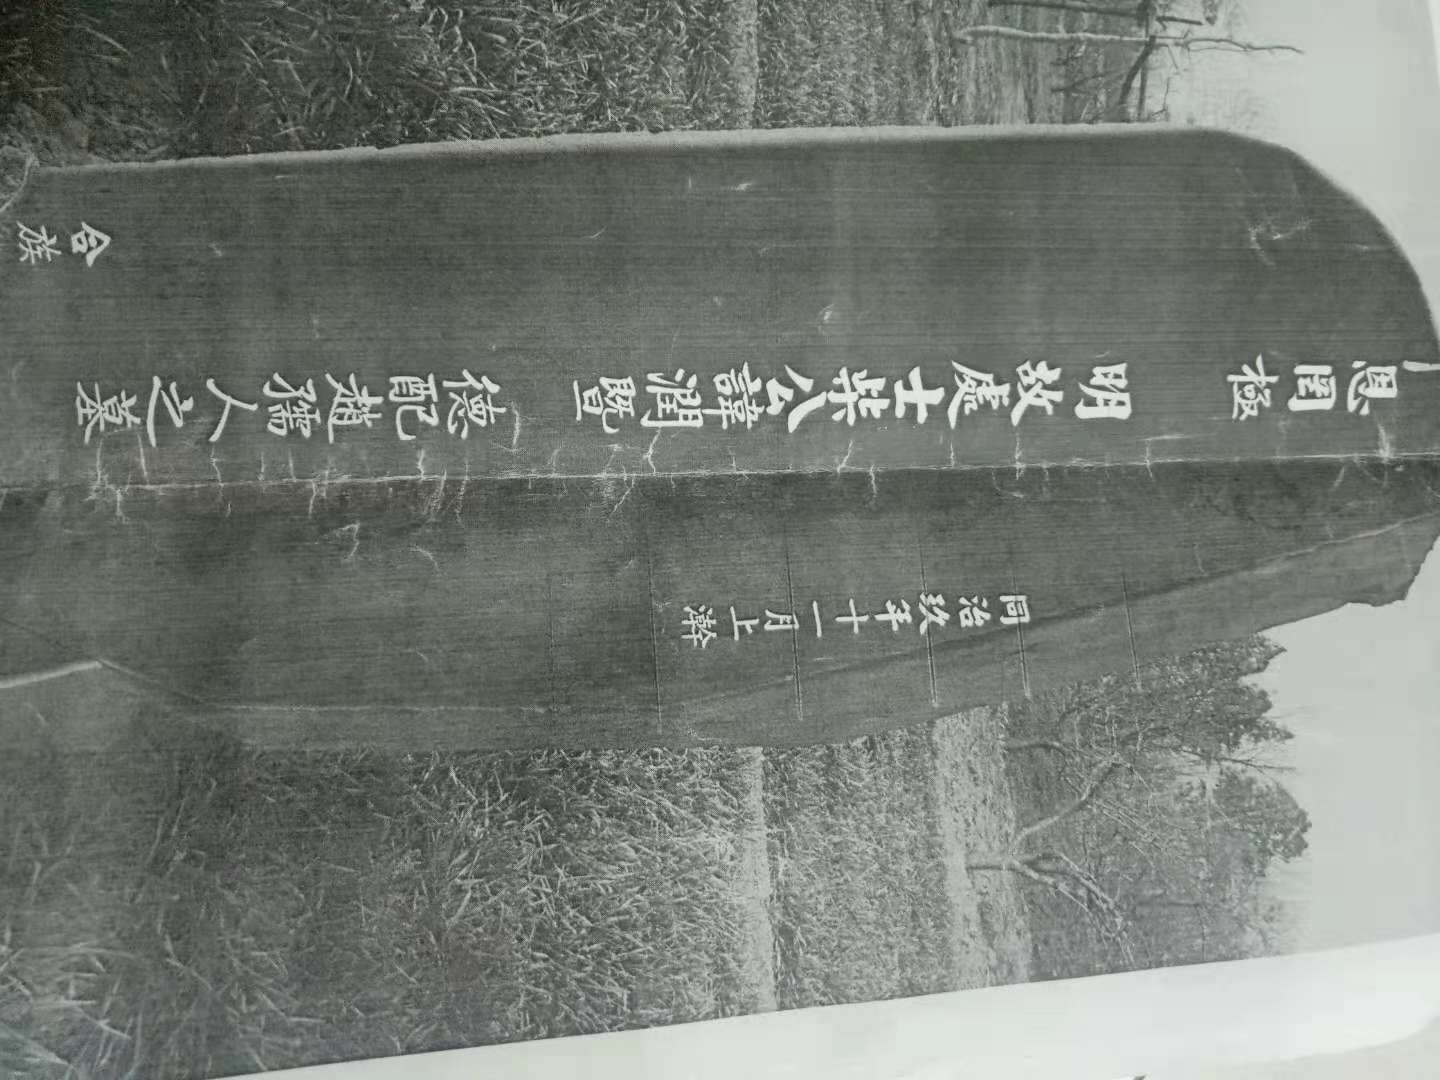 同治玖年十一月上澣
恩罔極
明故處士柴公諱潤暨德配趙孺人之墓
合族